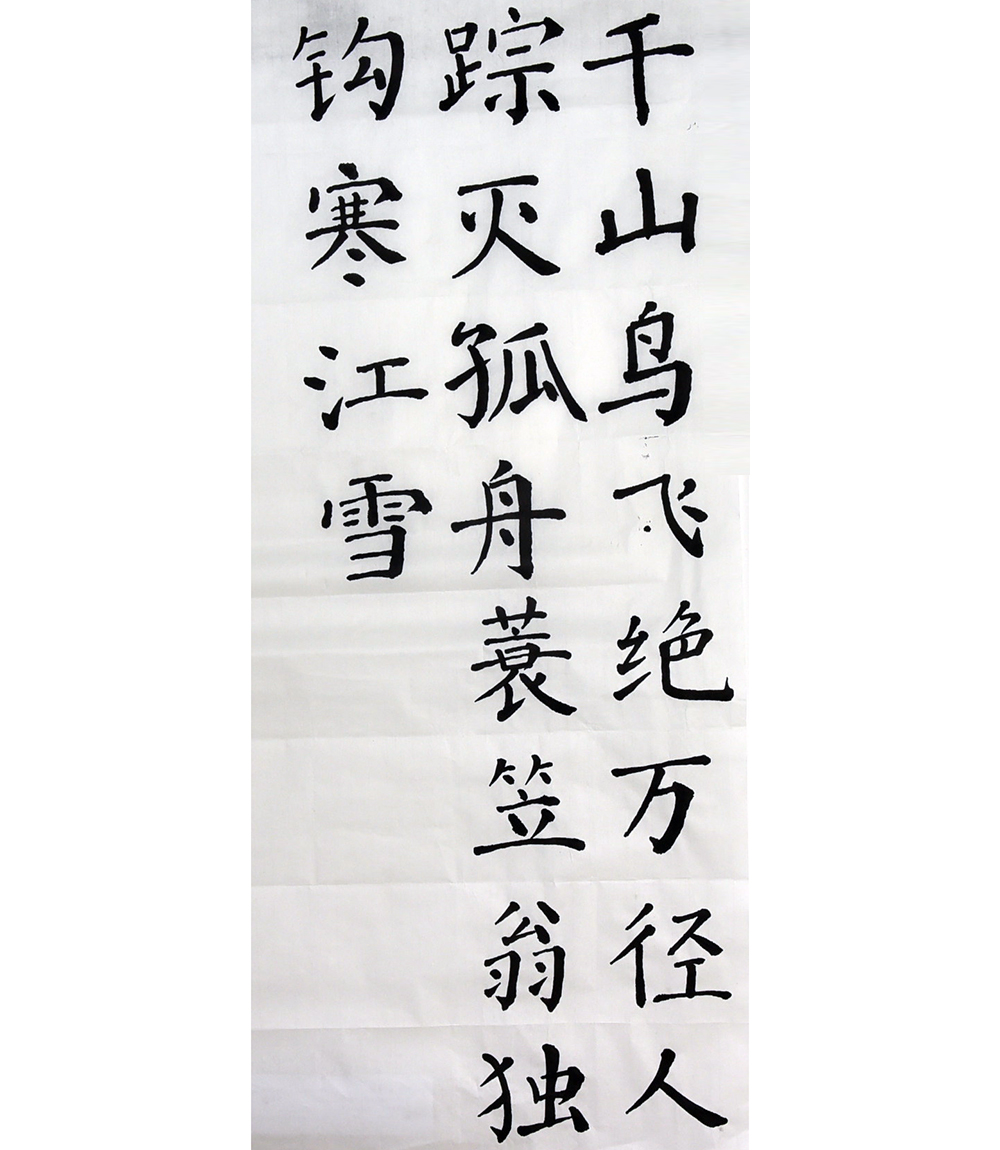 千山鸟飞绝万径人
踪灭孤舟蓑笠翁独
钩寒江雪